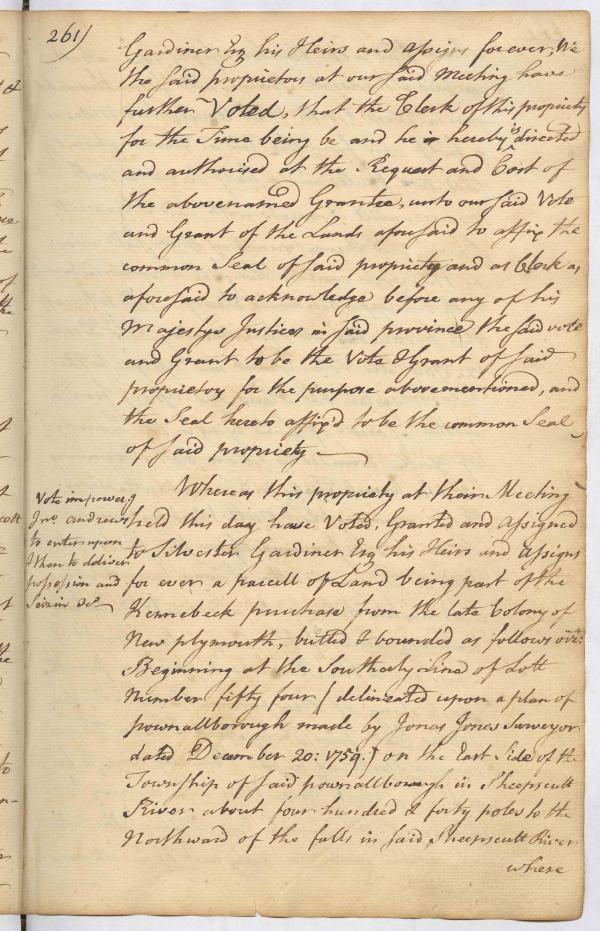 261)
Gardiner Esq his Heirs and assigns forever, We
the said proprietors at our said Meeting have
further Voted, that the Clerk of this propriety
for the Time being be and he is hereby directed
and authorised at the Request and Cost of
the abovenamed Grantee, unto our said Vote
and Grant of the Lands aforesaid to affix the
common Seal of said propriety and as Clerk as
aforesaid to acknowledge before any of his
Majestys Justices in said province the said vote
and Grant to be the Vote & Grant of said
proprietors for the purpose abovementioned, and
the Seal hereto affix'd to be the common Seal
of said propriety
Vote impower.g
Jno. andrews
to enter upon
& then to deliver
possession and
Seizin &c.
Whereas this propriety at their Meeting
held this day have Voted, Granted and assigned
to Silvester Gardiner Esq his Heirs and assigns
for ever a parcell of Land being part of the
Kennebeck purchase from the late Colony of
New plymouth, butted & bounded as follows viz:
Beginning at the Southerly Line of Lott
Number fifty four (delineated upon a plan of
pownallborough made by Jonas Jones Surveyor
dated December 20: 1759.) on the East Side of the
Township of said pownallborough in Sheepscutt
River about four hundred & forty poles to the
Northward of the falls in said Sheepscutt River
where